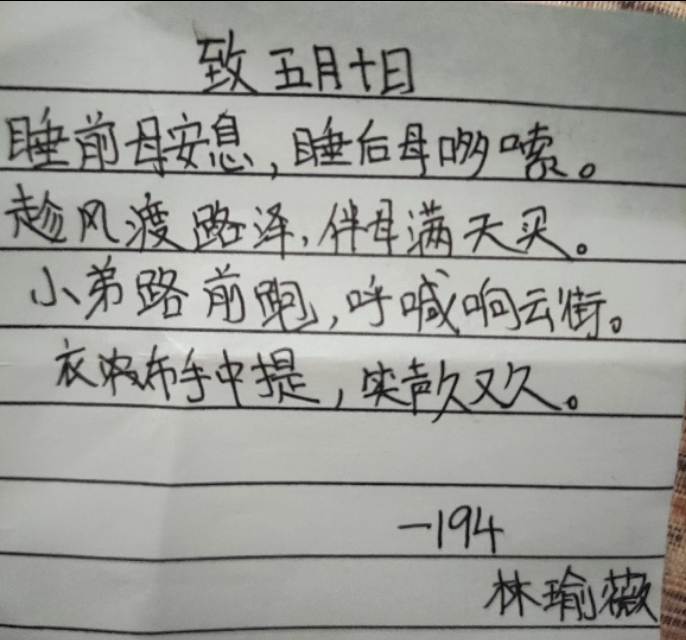 致五月十日
睡前母安息，睡后母哆嗦。
趁风渡路泽，伴母满天买。
小弟路前跑，呼喊响云街。
衣布手中提，笑款久又久。
一194
林瑜薇